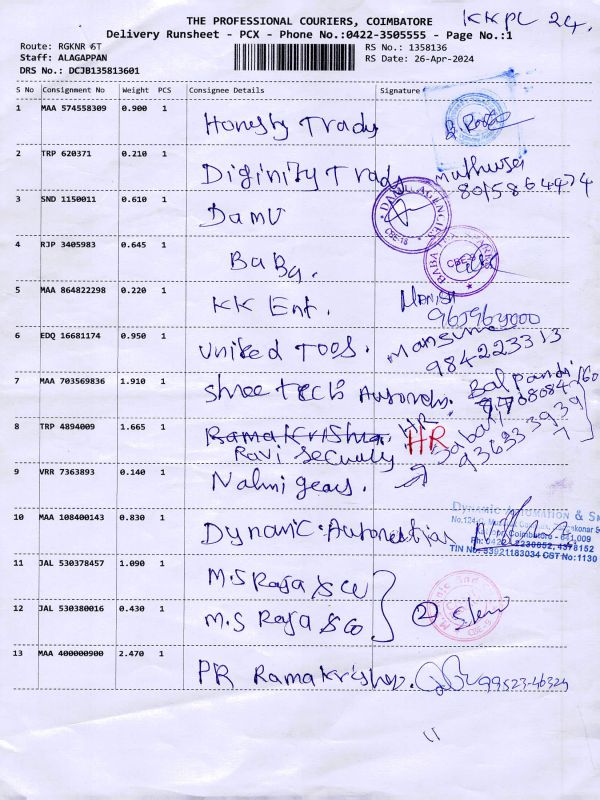 THE PROFESSIONAL COURIERS, COIMBATORE
KKPL 24.
Delivery Runsheet - PCX - Phone No.:0422-3505555 - Page No.:1
Route: RGKNR 6T
RS No.: 1358136
Staff: ALAGAPPAN
RS Date: 26-Apr-2024
DRS No.: DCJB135813601
S No Consignment No Weight PCS Consignee Details Signature
1 MAA 574558309 0.900 1 Honesty Trady
2 TRP 620371 0.210 1 Diginity Trady
8015864474
3 SND 1150011 0.610 1 Damu
DAMU AGENCIES
CBE-18
4 RJP 3405983 0.645 1 BaBa.
BABA
5 MAA 864822298 0.220 1 KK Ent. Manish
6 EDQ 16681174 0.950 1 United Tools.
984223313
7 MAA 703569836 1.910 1 Shree Tech Automen.
8 TRP 4894009 1.665 1 Ramakrishna. HR HR
Ravi Security
9 VRR 7363893 0.140 1 Nalmi gears.
10 MAA 108400143 0.830 1 Dynamic Automation
DYNAMIC AUTOMATION &
Coimbatore - 641 009
11 JAL 530378457 1.090 1 M.S Raja & co
12 JAL 530380016 0.430 1 M.S Raja & co
2
13 MAA 400000900 2.470 1 PR Ramakrishna. 99523-46324